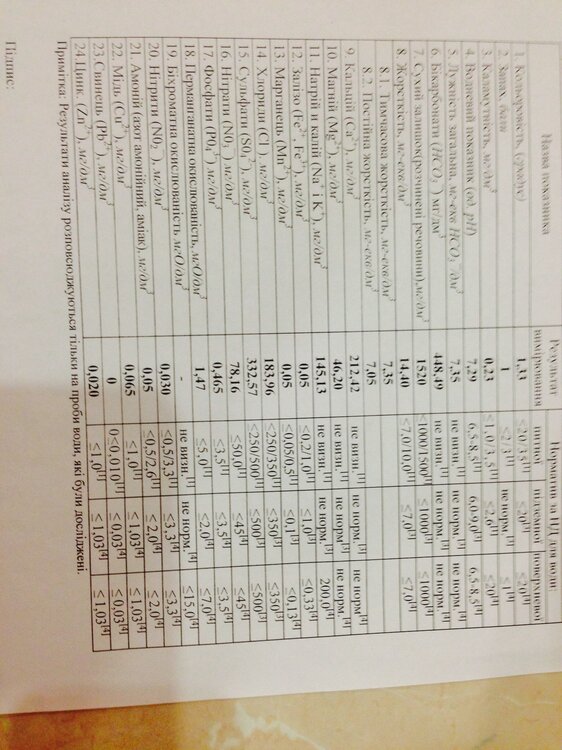 Назва показника Результат вимірювання Норматив за НД для води:
питної підземної поверхневої
1. Кольоровість, (градус) 1,33 ≤20/35[1] ≤20[3] ≤20[3]
2. Запах, бали 1 ≤2/3[1] не норм.[3] ≤1[3]
3. Каламутність, мг/дм3 0,23 ≤1,0/3,5[1] ≤2,6[3] ≤20[3]
4. Водневий показник (од. рН) 7,29 6,5-8,5[1] 6,0-9,0[3] 6,5-8,5[3]
5. Лужність загальна, мг-екв НСО3-/дм3 7,35 не визн.[1] не норм.[3] не норм.[3]
6. Бікарбонати (НСО3-) мг/дм3 448,49 не визн.[1] не норм.[3] не норм.[4]
7. Сухий залишок(розчинені речовини),мг/дм3 1520 ≤1000/1500[1] ≤1000[3] ≤1000[3]
8. Жорсткість, мг-екв/дм3 14,40 ≤7,0/10,0[1] ≤7,0[3] ≤7,0[4]
8.1. Тимчасова жорсткість, мг-екв/дм3 7,35
8.2. Постійна жорсткість, мг-екв/дм3 7,05
9. Кальцій (Ca2+), мг/дм3 212,42 не визн.[1] не норм.[3] не норм.[4]
10. Магній (Mg2+), мг/дм3 46,20 не визн.[1] не норм.[3] не норм.[4]
11. Натрій и калій (Na+ і K+), мг/дм3 145,13 не визн.[1] не норм.[3] 200,0[4]
12. Залізо (Fe2+,Fe3+), мг/дм3 0,05 ≤0,2/1,0[1] ≤1,0[3] ≤0,33[4]
13. Марганець (Mn2+), мг/дм3 0,05 ≤0,05/0,5[1] ≤0,1[3] ≤0,13[4]
14. Хлориди (Cl-), мг/дм3 183,96 ≤250/350[1] ≤350[3] ≤350[3]
15. Сульфати (SO42-), мг/дм3 332,57 ≤250/500[1] ≤500[3] ≤500[3]
16. Нітрати (N03-), мг/дм3 78,16 ≤50,0[1] ≤45[4] ≤45[4]
17. Фосфати (Р043-),мг/дм3 0,465 ≤3,5[1] ≤3,5[4] ≤3,5[4]
18. Перманганатна окислюваність, мгО/дм3 1,47 ≤5,0[1] ≤2,0[4] ≤7,0[4]
19. Біхроматна окислюваність, мгО/дм3 - не визн.[1] не норм.[4] ≤15,0[4]
20. Нітрити (N02-), мг/дм3 0,030 ≤0,5/3,3[1] ≤3,3[4] ≤3,3[4]
21. Амоній (азот амонійний, аміак), мг/дм3 0,05 ≤0,5/2,6[1] ≤2,0[4] ≤2,0[4]
22. Мідь (Cu2+), мг/дм3 0,065 ≤1,0[1] ≤1,03[4] ≤1,03[4]
23.Свинець, (Pb2+), мг/дм3 0 0<0,010[1] ≤0,03[4] ≤0,03[4]
24.Цинк, (Zn2+), мг/дм3 0,020 ≤1,0[1] ≤1,03[4] ≤1,03[4]
Примітка: Результати аналізу розповсюджуються тільки на проби води, які були досліджені.
Підпис: